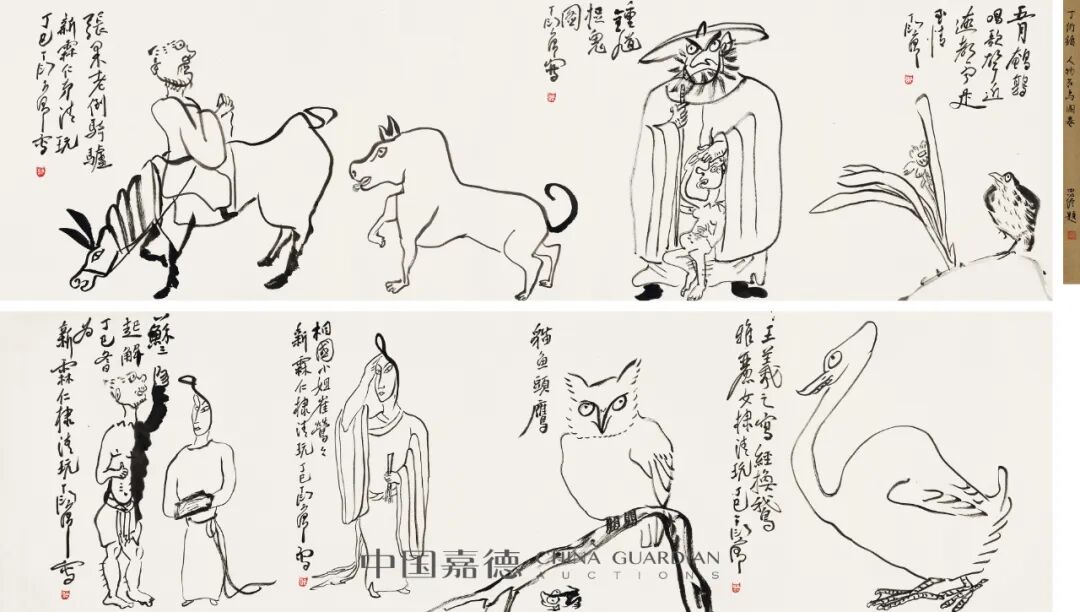 丁衍鏞 人物花鳥圖卷
五月鵪鶉
唱歌聲近
遠都
鍾馗
捉鬼
圖
丁衍庸寫
張果老倒騎驢
新霖仁弟清玩
丁巳丁衍庸寫
王羲之寫經換鵝
雅麗女棣清玩丁巳丁衍庸
貓魚頭鷹
相國小姐崔鶯々
新霖仁棣清玩丁巳丁衍庸寫
蘇三
起解
丁巳春
為
新霖仁棣清玩丁衍庸寫
中国嘉德 CHINA GUARDIAN
AUCTIONS